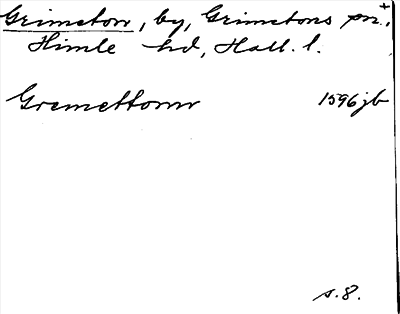 Grimeton, by, Grimetons sn.,
Himle hd, Hall. l.
Gremettonn 1596 jb
s. 8.